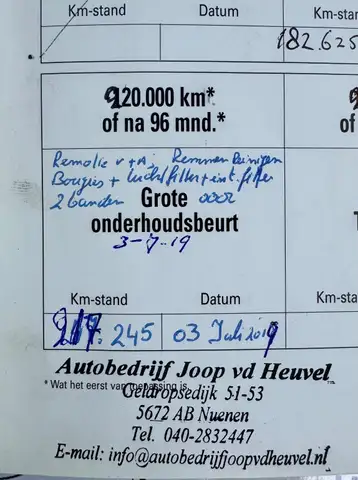 Km-stand Datum Km-stand
182.625
220.000 km*
of na 96 mnd.* of
Remolie v+A; Remmen Reinigen
Bougies + luchtfilter + int. filter
2 banden voor
Grote
onderhoudsbeurt
3-7-19
Km-stand Datum Km-sta
217.245 03 Juli 2019
Autobedrijf Joop vd Heuvel
* Wat het eerst van toepassing is.
Geldropsedijk 51-53
5672 AB Nuenen
Tel. 040-2832447
E-mail: info@autobedrijfjoopvdheuvel.nl